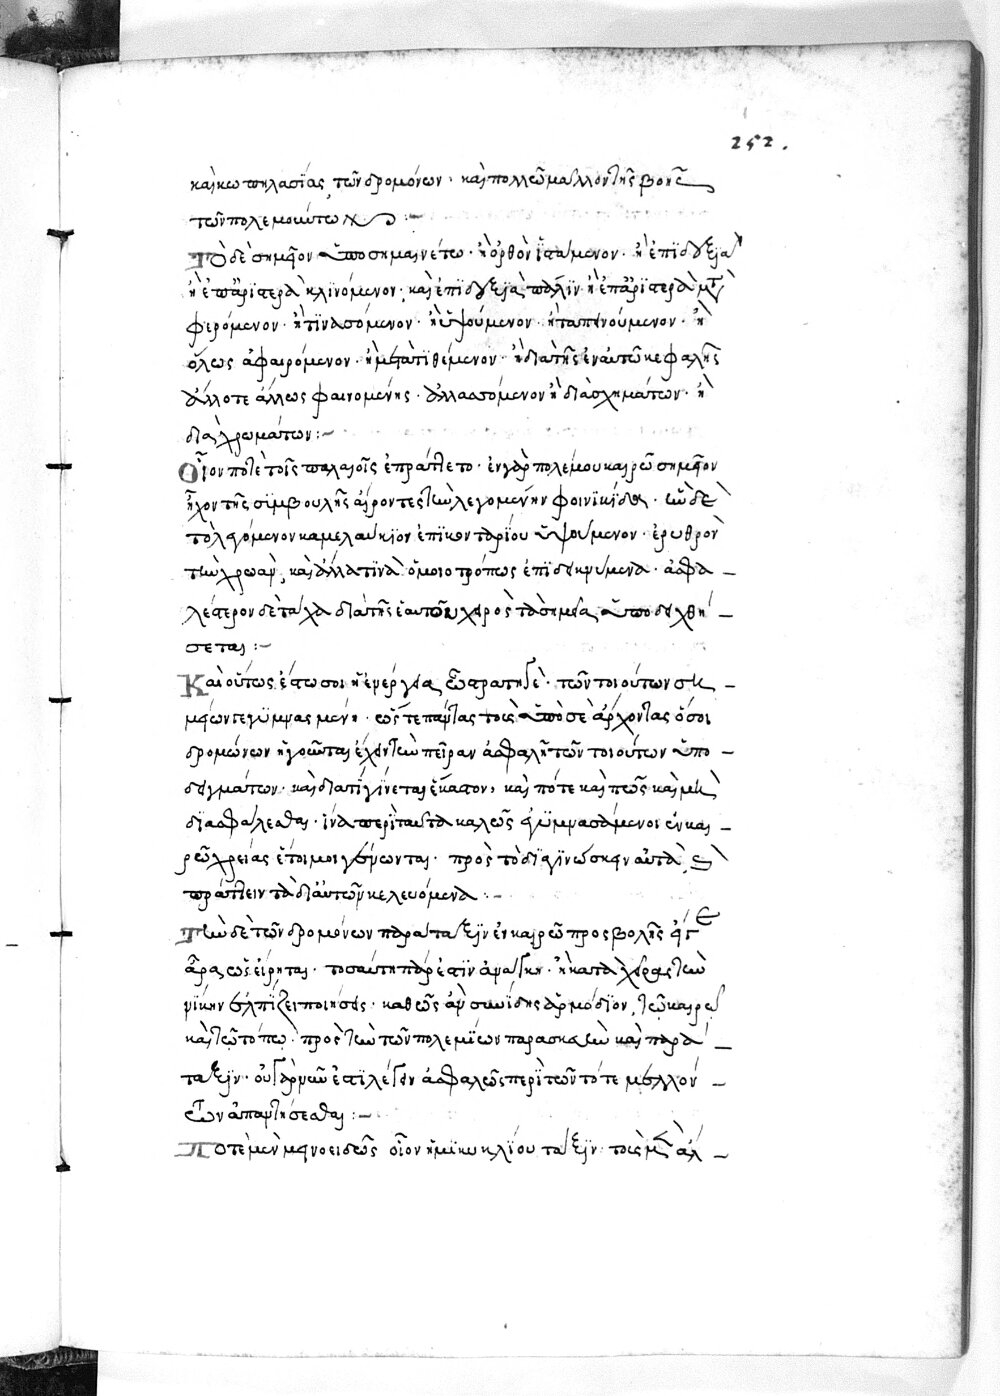 252.
καὶ κωπηλασίας τῶν δρομόνων · καὶ πολλῶ μᾶλλον τῆς βοῆς
τῶν πολεμούντων :~
Τὸ δὲ σημεῖον ὑποσημαινέτω · ἢ ὀρθὸν ἱστάμενον · ἢ ἐπὶ δεξιὰ
ἢ ἐπ ἀριστερὰ κλινόμενον · καὶ ἐπὶ δεξιὰ πάλιν ἢ ἐπ ἀριστερὰ μετα
φερόμενον · ἢ τινασόμενον · ἢ ὑψούμενον · ἢ ταπεινούμενον · ἢ
ὅλως ἀφαιρόμενον · ἢ μετατιθέμενον · ἢ διὰ τῆς ἐν αὐτῶ κεφαλῆς
ἄλλοτε ἄλλως φαινομένης · ἀλλασόμενον ἢ διὰ σχημάτων · ἢ
διὰ χρωμάτων :~
Οἷον ποτὲ τοῖς παλαιοῖς ἐπράττετο · ἐν γὰρ πολέμου καιρῶ σημεῖον
εἶχον τῆς συμβουλῆς αἴροντες τὴν λεγομένην φοινικίδα · ἦν δὲ
τὸ λεγόμενον καμελαύκιον ἐπὶ κονταρίου ὑψούμενον · ἐρυθρὸν
τὴν χροιὰν, καὶ ἄλλα τινὰ ὁμοιοτρόπως ἐπιδεικνύμενα · ἀσφα –
λέστερον δὲ τάχα διὰ τῆς ἑαυτοῦ χειρὸς τὰ σημεῖα ὑποδειχθή –
σεται :~
Καὶ οὕτως ἔστω σοι ἡ ἐνέργεια ὦ στρατηγὲ · τῶν τοιούτων ση –
μείων γεγυμνασμένη · ὥστε πάντας τοὺς ὑπὸ σὲ ἄρχοντας ὅσοι
δρομώνων ἡγοῦνται ἔχειν τὴν πεῖραν ἀσφαλῆ τῶν τοιούτων ὑπο –
δειγμάτων · καὶ διατί γίνεται ἕκαστον, καὶ πότε καὶ πῶς καὶ μὴ
διασφάλεσθαι · ἵνα περὶ ταῦτα καλῶς γυμνασάμενοι ἐν και –
ρῶ χρείας ἕτοιμοι γένωνται · πρὸς τὸ διαγινώσκειν αὐτὰ καὶ
πράττειν τὰ δι αὐτῶν κελευόμενα :~
Τὴν δὲ τῶν δρομόνων παράταξιν ἐν καιρῶ προσβολῆς
ἄρα ὡς εἴρηται · τοσαύτη πάρεστιν ἀνάγκη · ἢ κατὰ χεῖρας τὴν
νίκην ἐλπίζει ποιήσεις · καθὼς ἂν συνίδης ἁρμόδιον, τῶ καιρῶ
καὶ τῶ τόπω · πρὸς τὴν τῶν πολεμίων παρασκευὴν καὶ παρά –
ταξιν · οὐ γὰρ νῦν ἔστι λέγειν ἀσφαλῶς περὶ τῶν τότε μελλόν –
των ἀπαντήσεσθαι :~
Ποτὲ μὲν μηνοειδῶς οἷον ἡμικυκλίου τάξιν · τοὺς μὲν ἀλ –